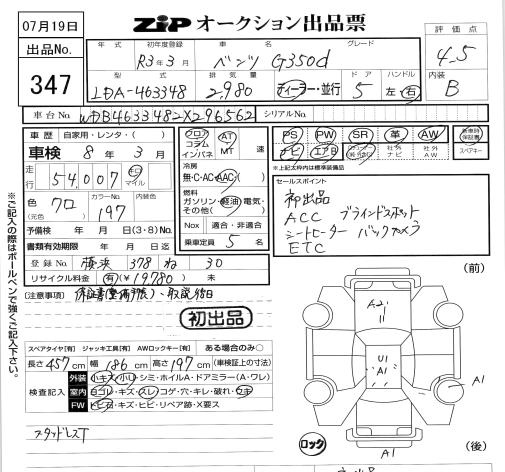 07月19日
出品No.
347
ZIP オークション出品票
評価点
4.5
内装
B
年式 初年度登録 車名 グレード
R3年3月 ベンツ G350d
型式 排気量 ドア ハンドル
LDA-463348 2,980 ディーラー・並行 5 左 右
車台No. WDB4633482X296562 シリアルNo.
車歴 自家用・レンタ・( )
車検 8年 3月
走行 54,007 km マイル
色 クロ (元色) カラーNo. 197 内装色
予備検 年 月 日(3・8)No.
書類有効期限 年 月 日迄
登録No. 横浜 378 ね 30
リサイクル料金 有(¥19,780) 未
(注意事項) 保証書(整備手帳)、取説
フロア コラム インパネ AT MT 速
冷房
無・C・AC・AAC( )
燃料
ガソリン・軽油・電気・その他( )
Nox 適合・非適合
乗車定員 5 名
PS PW SR 革 AW 新車時保証書
ナビ エアB 社外ナビ 社外AW スペアキー
※上記太枠内は標準装備品
セールスポイント
初出品
ACC ブラインドスポット
シートヒーター バックカメラ
ETC
初出品
スペアタイヤ[有] ジャッキ工具[有] AWロックキー[有] ある場合のみ〇
長さ457cm 幅186cm 高さ197cm (車検証上の寸法)
検査記入
外装 小キズ・小U・シミ・ホイルA・ドアミラー(A・ワレ)
室内 ヨゴレ・キズ・スレ・コゲ・穴・キレ・破れ・ウキ
FW トビ石・キズ・ヒビ・リペア跡・X要ス
スタッドレスT
※ご記入の際はボールペンで強くご記入下さい。
(前)
U1
A1
A1
A1
ロック
(後)